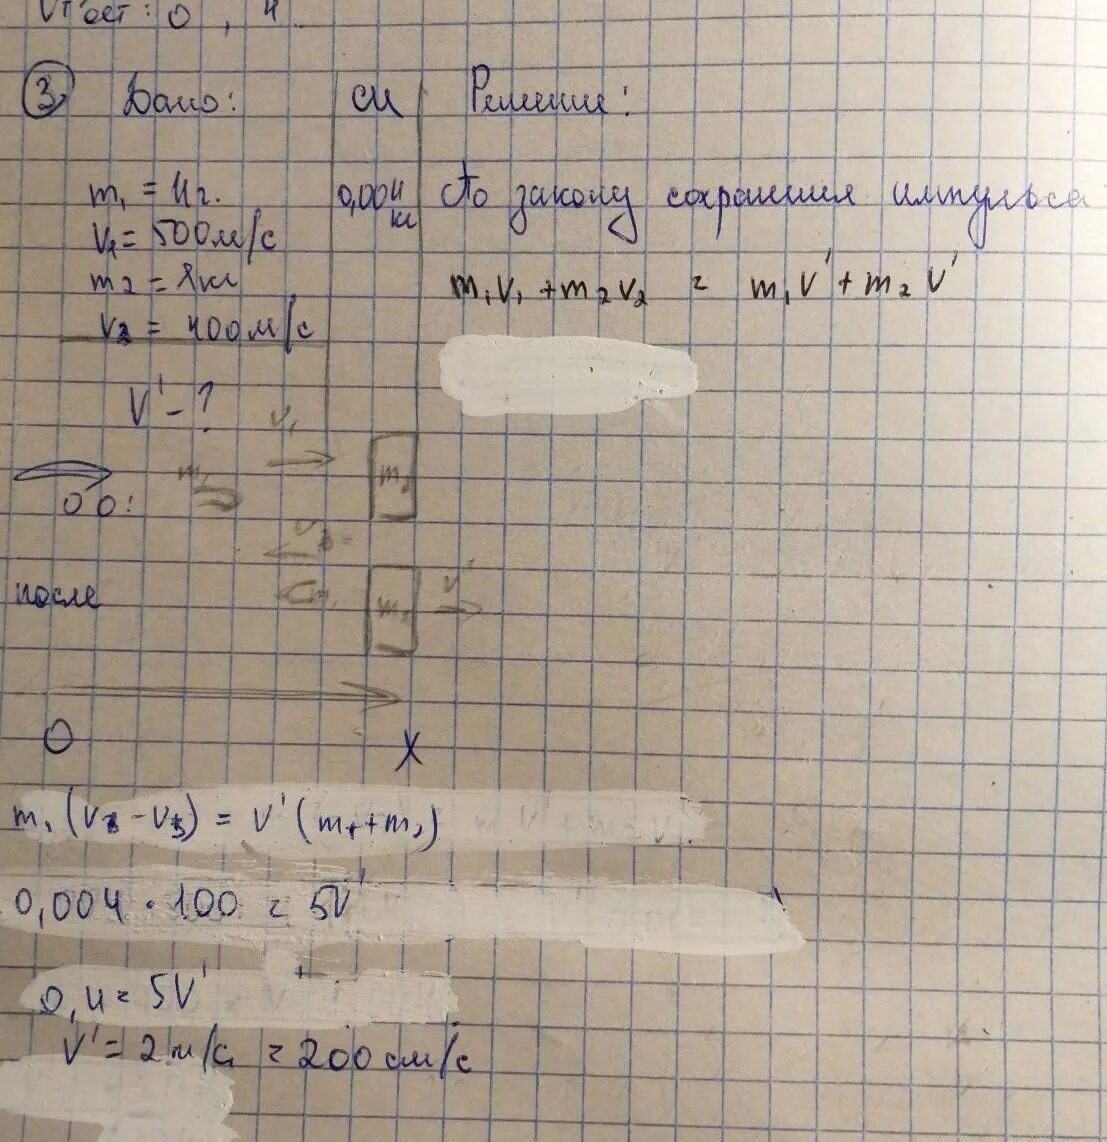 Ответ: 0,4.
③ Дано: СИ Решение:
m₁ = 4г. 0,004 кг По закону сохранения импульса
V₁ = 500м/с
m₂ = 1кг m₁V₁ + m₂V₂ = m₁V' + m₂V'
V₂ = 400м/с
V' - ?
V₁
m₁ m₂
До:
V₃
после m₁ m₂ V'
O X
m₁(V₂ - V₃) = V'(m₁+m₂)
0,004 · 100 = 5V'
0,4 = 5V'
V' = 2м/с = 200см/с